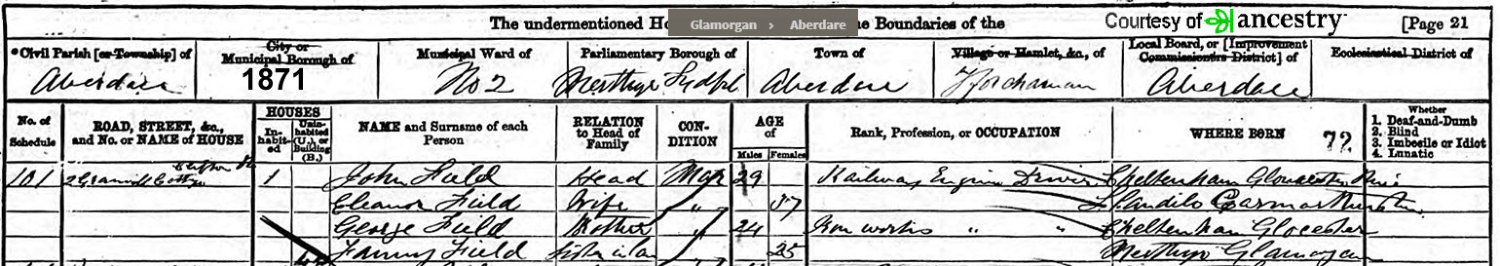 The undermentioned Ho Glamorgan › Aberdare e Boundaries of the Courtesy of ancestry [Page 21
Civil Parish [or Township] of City or Municipal Borough of Municipal Ward of Parliamentary Borough of Town of Village or Hamlet, &c., of Local Board, or [Improvement Commissioners District] of Ecclesiastical District of
Aberdare 1871 No 2 Merthyr Tydfil Aberdare Aberdare
No. of Schedule ROAD, STREET, &c., and No. or NAME of HOUSE HOUSES In-habit-ed Unin-habited (U.), or Building (B.) NAME and Surname of each Person RELATION to Head of Family CON-DITION AGE of Males Females Rank, Profession, or OCCUPATION WHERE BORN 72 Whether
1. Deaf-and-Dumb
2. Blind
3. Imbecile or Idiot
4. Lunatic
101 1 John Field Head Mar 29 Railway Engine Driver Cheltenham
Eleanor Field Wife " 37 Llandilo
George Field Brother " 24 Iron works " " Cheltenham Glocester
Fanny Field Sister in law " 25 Merthyr Glamorgan